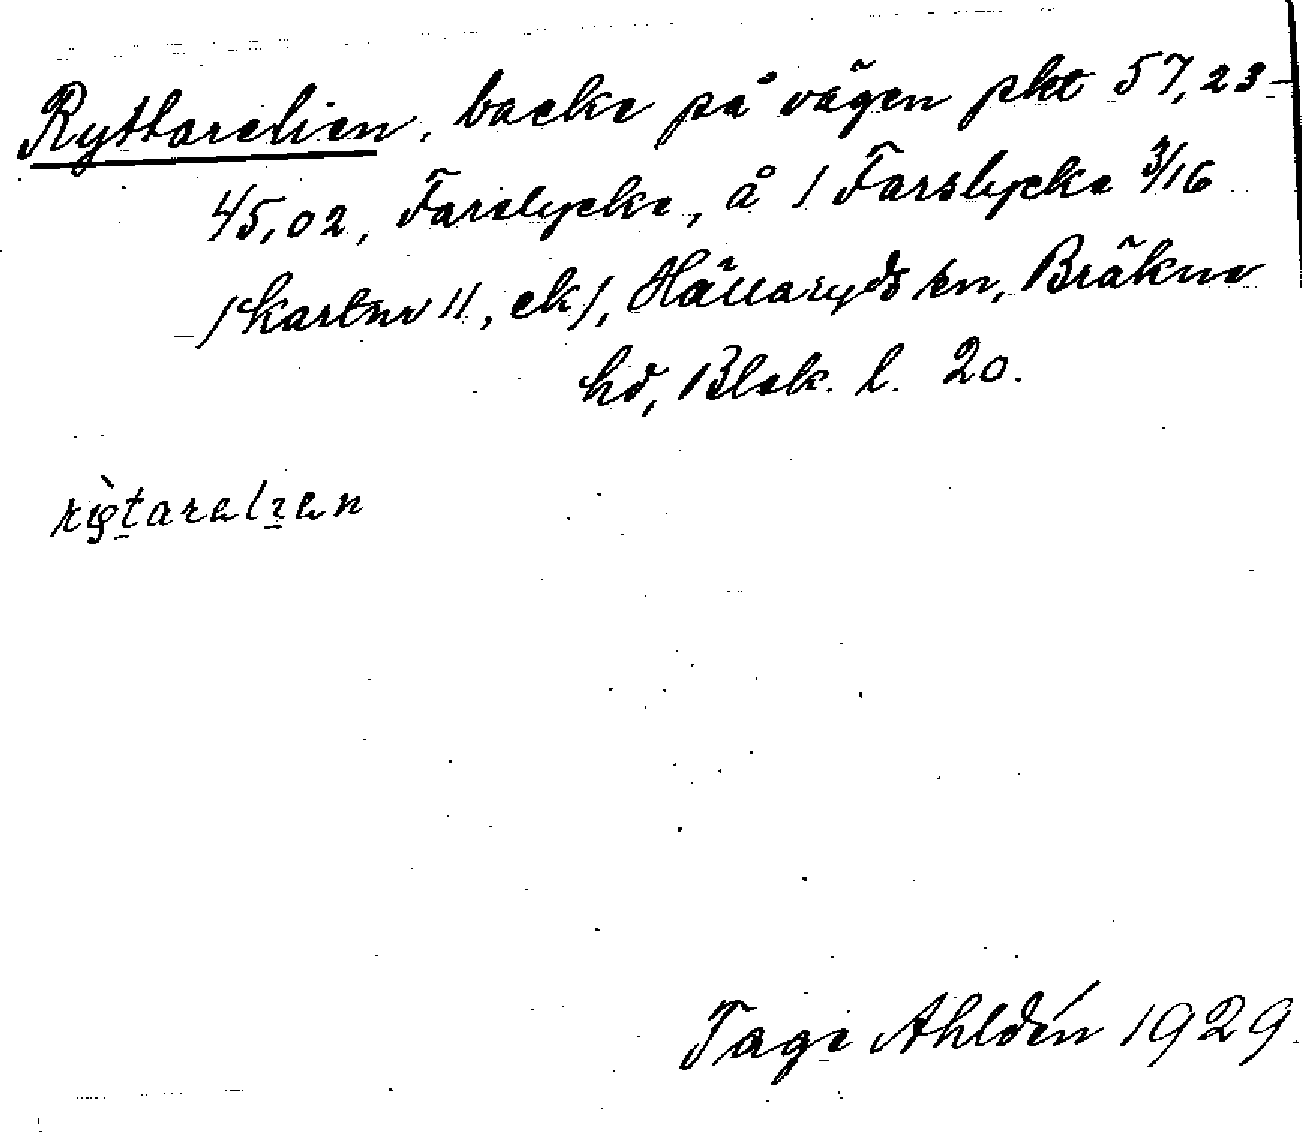 Ryttarelien, backe på vägen pkt 57,23–
45,02, Farslycke, å 1 Farslycke 3/16
/kartnr 11, ek/, Hällaryds sn, Bräkne
hd, Blek. l. 20.
Tage Ahldén 1929